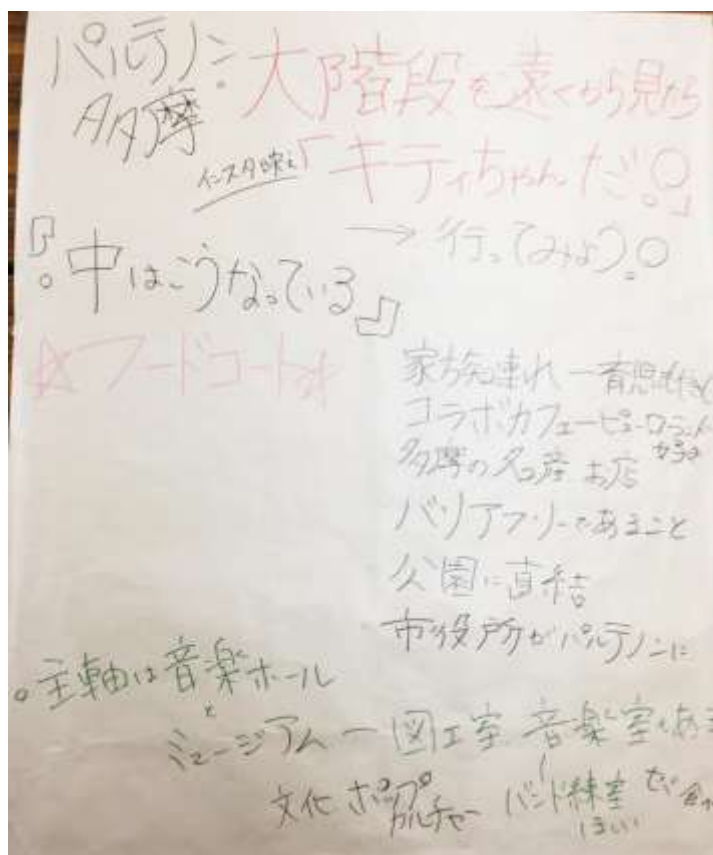 パルテノン
多摩
大階段を遠くから見たら
インスタ映え「キティちゃんだ!○」
→ 行ってみよう。○
『。中はこうなっている』
☆フードコート☆
家族連れー育児
コラボカフェーピューロランド
多摩の名産 お店
バリアフリーであること
公園に直結
市役所がパルテノンに
○主軸は音楽ホール
と
ミュージアムー図工室、音楽室もある
文化 ポップカルチャー バンド練
ほしい